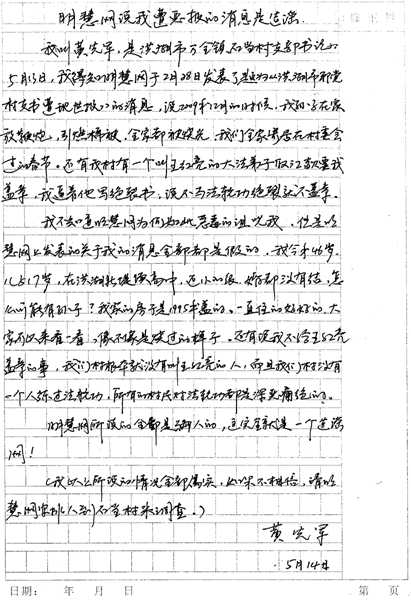 明慧网说我遭恶报的消息是造谣
我叫黄宪军,是洪湖市万全镇石当村支部书记。
5月13日,我得知明慧网于2月28日发表了题为《洪湖市邪党
村支书遭现世报》的消息,说2009年12月的时候,我的孙子在家
放鞭炮,引燃棉被,全家都被烧光,我们全家寄居在村委会
过的春节。还有我村有一个叫王红亮的大法弟子取江款要我
盖章,我逼着他写绝裂书,说不与法轮功绝裂就不盖章。
我不知道明慧网为何如此恶毒的诅咒我,但是明
慧网上发表的关于我的消息全部都是假的,我今年46岁,
儿子17岁,在洪湖读高中,还小的很,婚都没有结,怎
么可能有孙子?我家的房子是1995年盖的,一直住的好好的,大
家可以来看一看,像不像是烧过的样子。还有说我不给王红亮
盖章的事,我们村根本就没有叫王红亮的人,而且我们村没有
一个人练过法轮功,所有的村民对法轮功都是深恶痛绝的。
明慧网所说的全都是骗人的,这完全就是一个造谣
网!
(我以上所说的情况全部属实,如果不相信,请明
慧网安排人到石当村来调查。)
黄宪军
5月14日
日期: 年 月 日 第 页